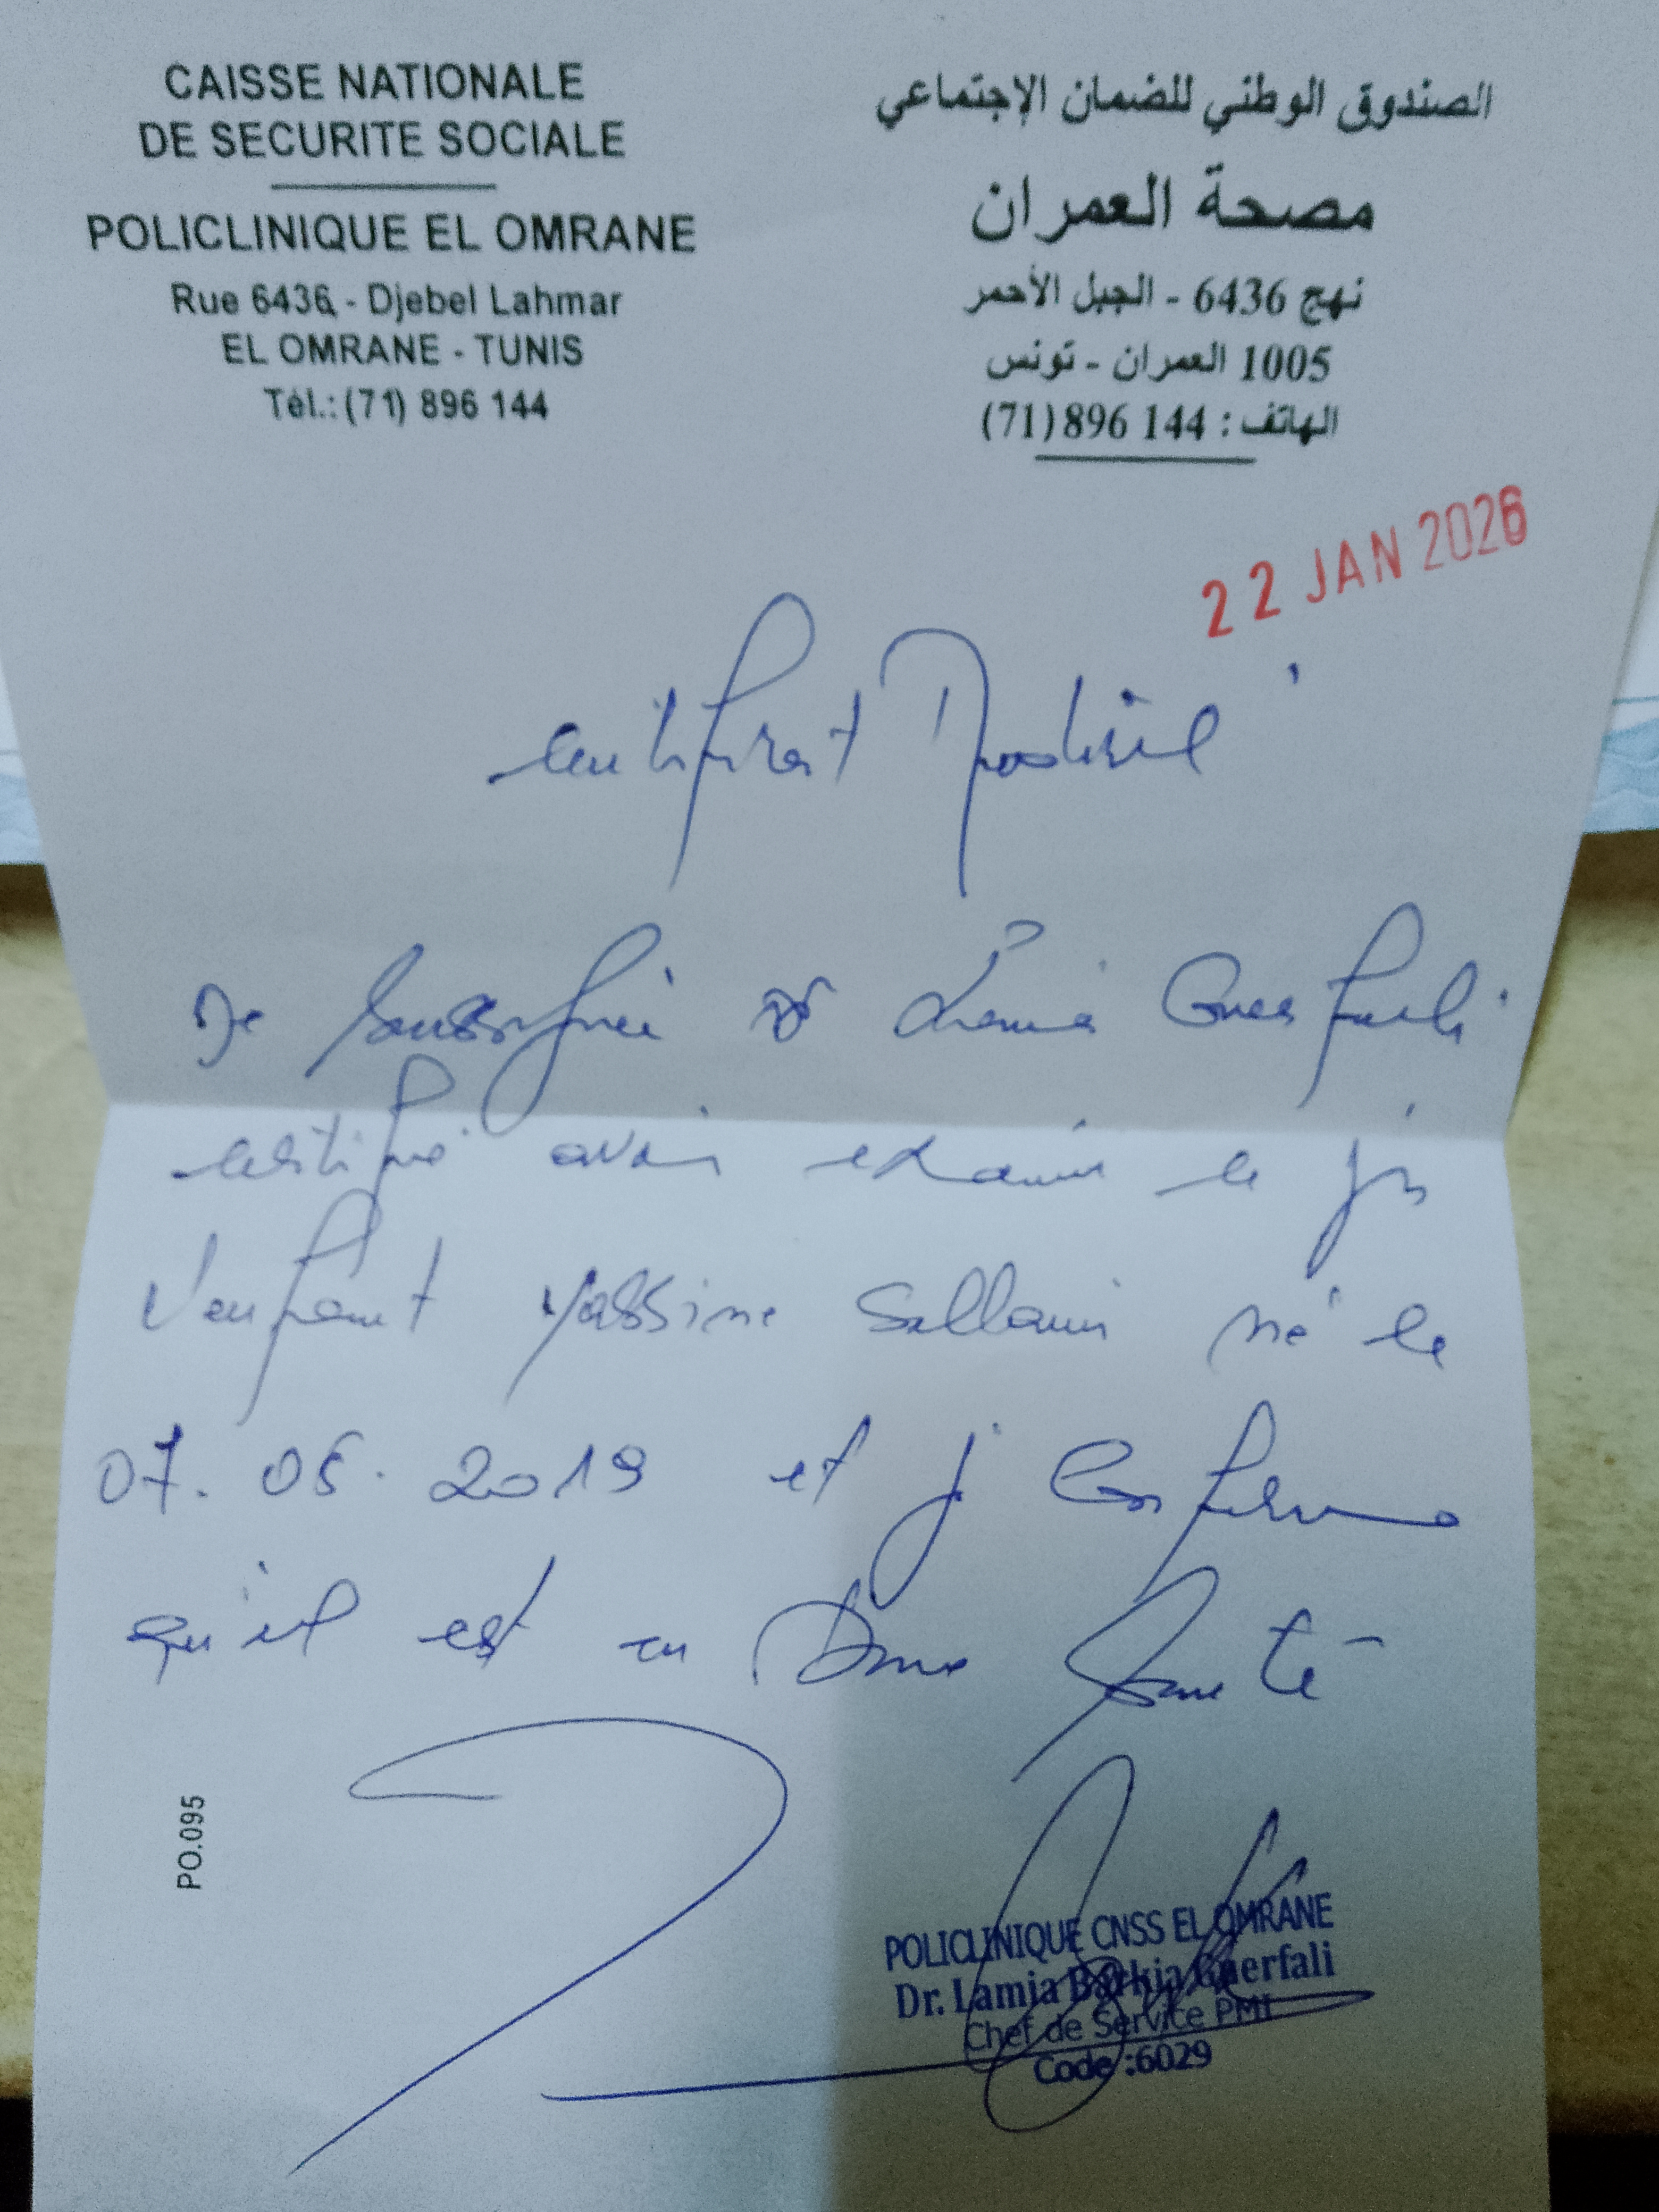 CAISSE NATIONALE
DE SECURITE SOCIALE
POLICLINIQUE EL OMRANE
Rue 6436 - Djebel Lahmar
EL OMRANE - TUNIS
Tél.: (71) 896 144
الصندوق الوطني للضمان الإجتماعي
مصحة العمران
نهج 6436 - الجبل الأحمر
1005 العمران - تونس
الهاتف : 144 896 (71)
22 JAN 2026
Certificat Médical
Je soussignée Dr Lamia Guerfali
certifie avoir examiné ce jour
l'enfant Yassine Sellami né le
07. 05. 2019 et je confirme
qu'il est en bonne santé
PO.095
POLICLINIQUE CNSS EL OMRANE
Dr. Lamia Barkia Guerfali
Chef de Service PMI
Code :6029